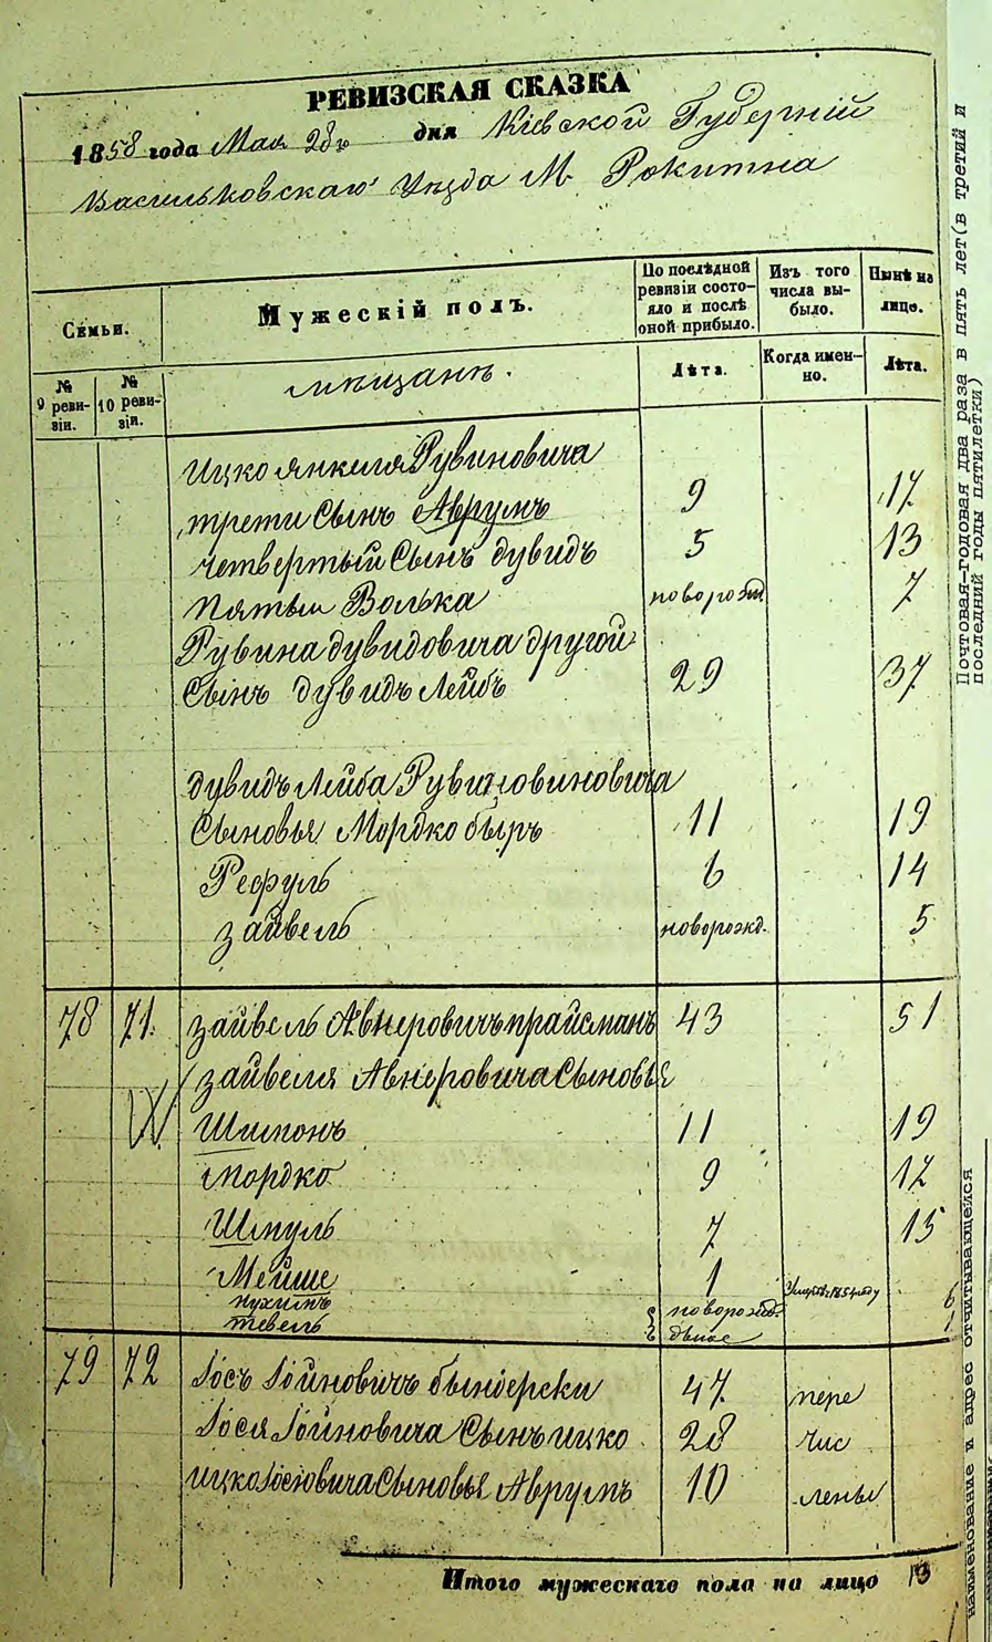 РЕВИЗСКАЯ СКАЗКА
1858 года Мая 28го дня Кіевской Губерніи
Васильковскаго Уезда М. Рокитна
Семьи.
Мужескій полъ.
По послѣдной ревизіи состояло и послѣ оной прибыло.
Изъ того числа выбыло.
Нынѣ на лицо.
№ 9 ревизіи.
№ 10 ревизіи.
мещане.
Лѣта.
Когда именно.
Лѣта.
Ицко Янкиля Рувиновича
трети Сынъ Аврумъ 9 17
четвертый Сынъ дувидъ 5 13
Пятыи Волька новорожд 7
Рувина дувидовича другой
Сынъ дувидъ Лейбъ 29 37
дувидъ Лейба Рувиновиновича
Сыновья Мордко быръ 11 19
Рефуль 6 14
зайвель новорожд. 5
78 71. зайвель Авнеровичъ прайсманъ 43 51
зайвеля Авнеровича Сыновья
Шимонъ 11 19
Мордко 9 17
Шмуль 7 15
Мейше 1
нухимъ новорожд. 6
тевель двое
79 72 Іосъ Іойновичъ бындерски 47 пере
Іося Іойновича Сынъ ицко 28 чис
ицко Іосіовича Сыновья Аврумъ 10 лены
Итого мужескаго пола на лицо 13
Почтовая-годовая два раза в пять лет(в третий и
последний годы пятилетки)
наименование и адрес отчитывающейся